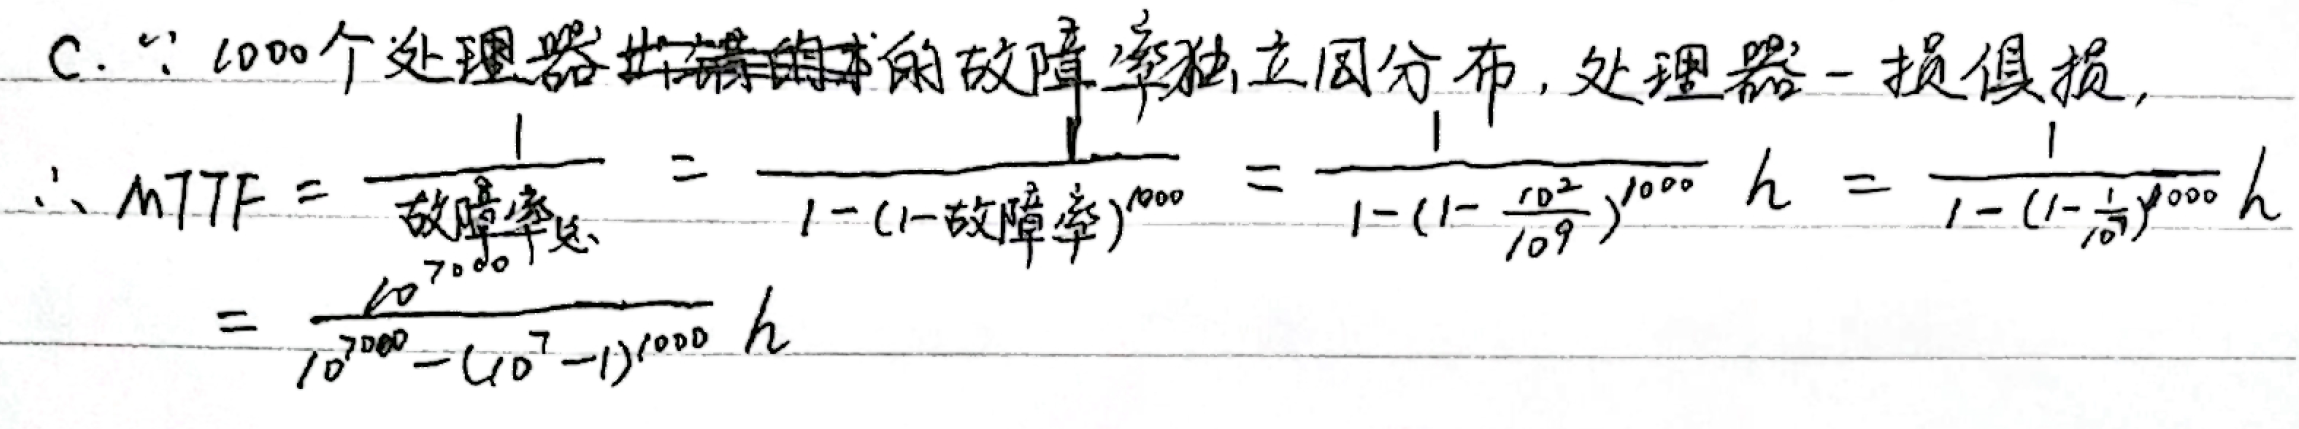 C. ∵ 1000个处理器的故障率独立同分布,处理器一损俱损,
∴ MTTF = 1/故障率总 = 1/(1-(1-故障率)^1000) = 1/(1-(1-10^2/10^9)^1000) h = 1/(1-(1-1/10^7)^1000) h
= 10^7000/(10^7000-(10^7-1)^1000) h